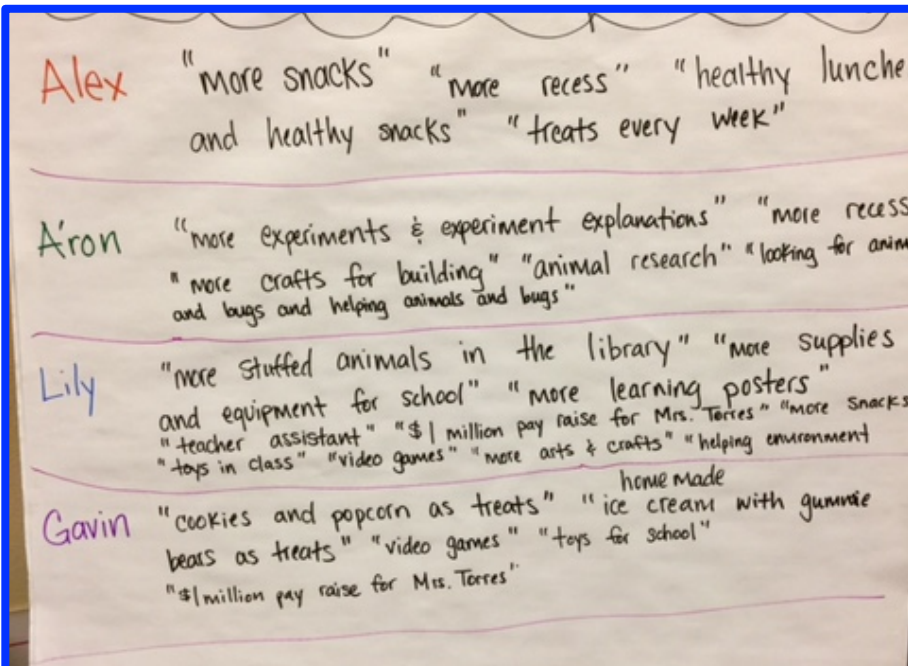 Alex "more snacks" "more recess" "healthy lunche
and healthy snacks" "treats every week"
A'ron "more experiments & experiment explanations" "more recess
"more crafts for building" "animal research" "looking for anim
and bugs and helping animals and bugs"
Lily "more stuffed animals in the library" "more supplies
and equipment for school" "more learning posters"
"teacher assistant" "$1 million pay raise for Mrs. Torres" "more snacks
"toys in class" "video games" "more arts & crafts" "helping environment
home made
Gavin "cookies and popcorn as treats" "ice cream with gummie
bears as treats" "video games" "toys for school"
"$1 million pay raise for Mrs. Torres"